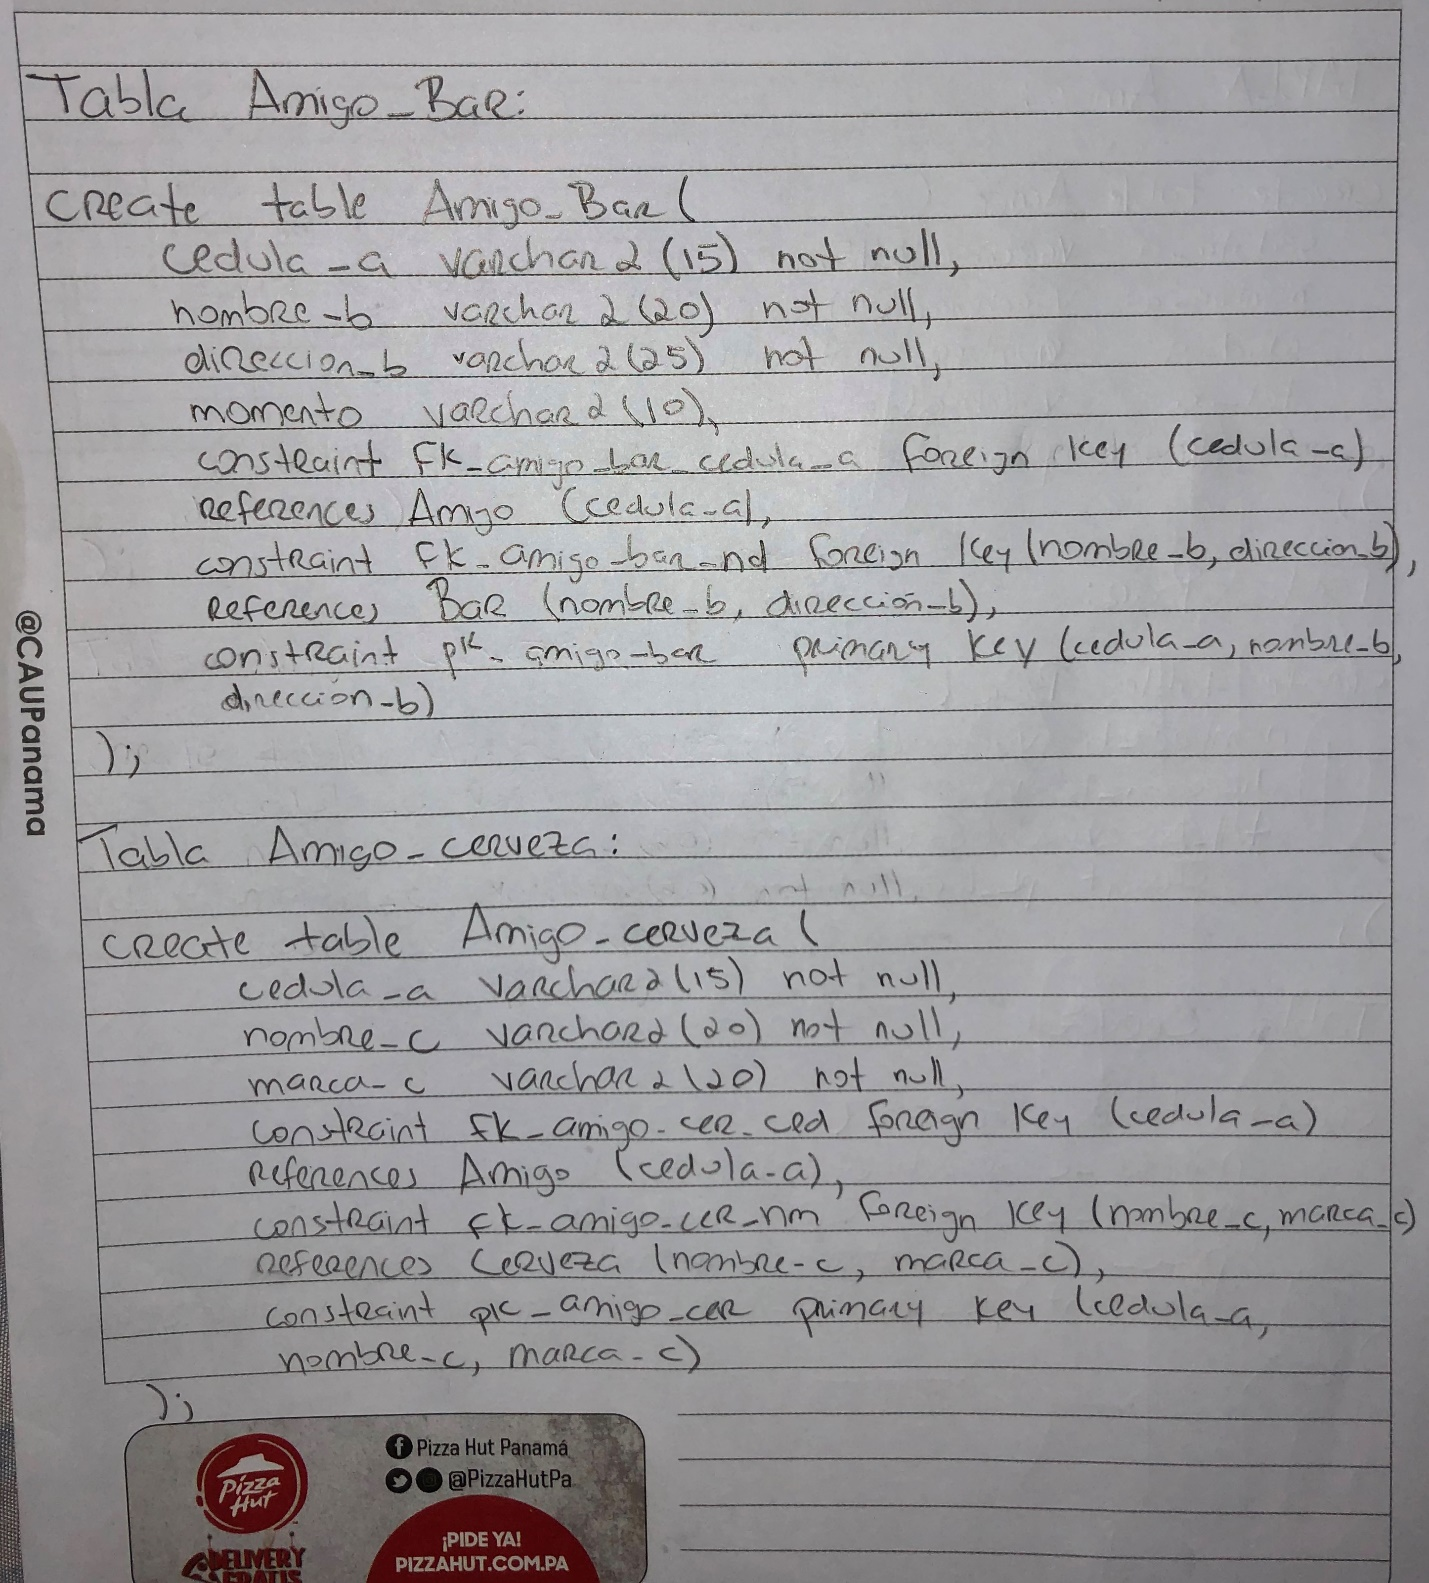 Tabla Amigo_Bar:
create table Amigo_Bar (
cedula_a varchar2 (15) not null,
nombre_b varchar2 (20) not null,
direccion_b varchar2 (25) not null,
momento varchar2 (10),
constraint fk_amigo_bar_cedula_a foreign key (cedula_a)
references Amigo (cedula_a),
constraint fk_amigo_bar_nd foreign key (nombre_b, direccion_b),
references Bar (nombre_b, dirección_b),
constraint pk_amigo_bar primary key (cedula_a, nombre_b,
dirección_b)
);
Tabla Amigo_cerveza:
create table Amigo_cerveza (
cedula_a varchar2 (15) not null,
nombre_c varchar2 (20) not null,
marca_c varchar2 (20) not null,
constraint fk_amigo_cer_ced foreign key (cedula_a)
references Amigo (cedula_a),
constraint fk_amigo_cer_nm foreign key (nombre_c, marca_c)
references Cerveza (nombre_c, marca_c),
constraint pk_amigo_cer primary key (cedula_a,
nombre_c, marca_c)
);
@CAUPanama
Pizza Hut
DELIVERY
GRATIS
Pizza Hut Panamá
@PizzaHutPa
¡PIDE YA!
PIZZAHUT.COM.PA